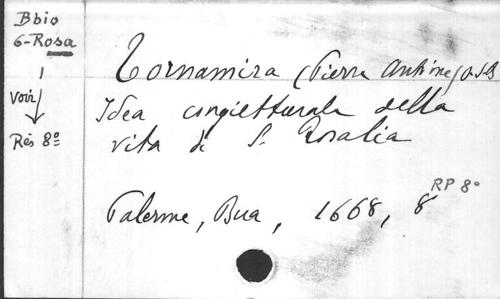 Bbio
6-Rosa
Voir
Rés 8º
Tornamira (Pierre Antoine) O.S.B
Idea congietturale della
vita di S. Rosalia
RP 8º
Palerme, Bua, 1668, 8